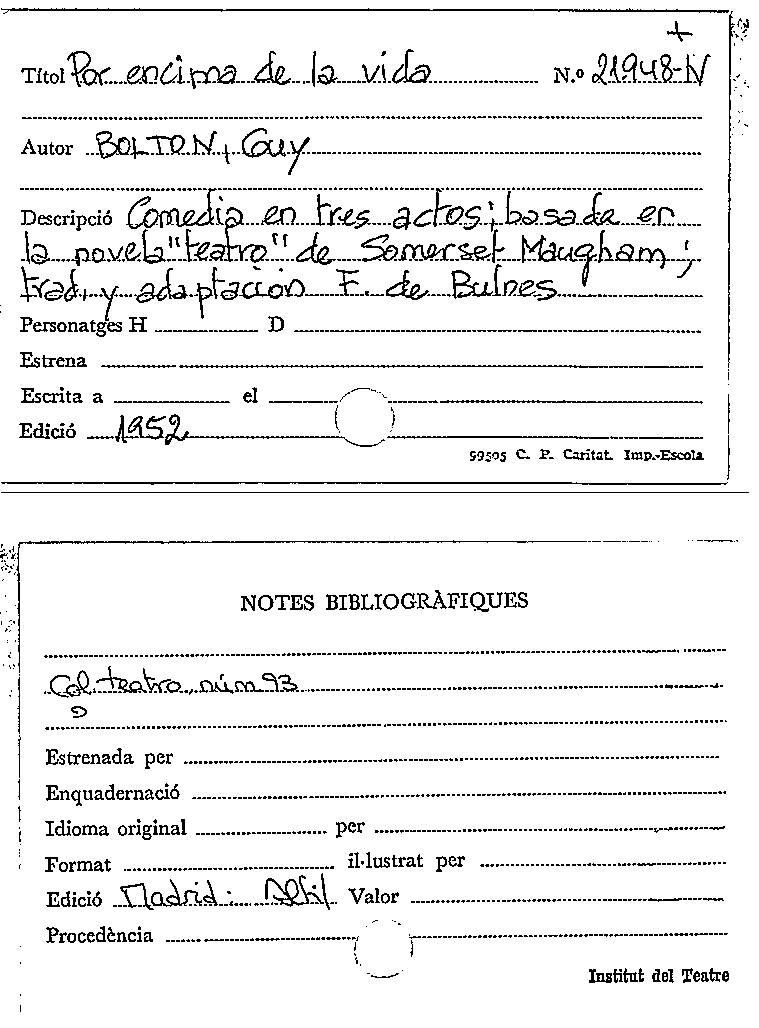 +
Títol Por encima de la vida N.º 21948-IV
Autor BOLTON, Guy
Descripció Comedia en tres actos; basada en
la novela "teatro" de Somerset Maugham;
trad, y adaptación F. de Bulnes
Personatges H D
Estrena
Escrita a el
Edició 1952
99505 C. P. Caritat. Imp.-Escola
NOTES BIBLIOGRÀFIQUES
Col. teatro, núm 93
Estrenada per
Enquadernació
Idioma original per
Format il·lustrat per
Edició Madrid: Alfil Valor
Procedència
Institut del Teatre